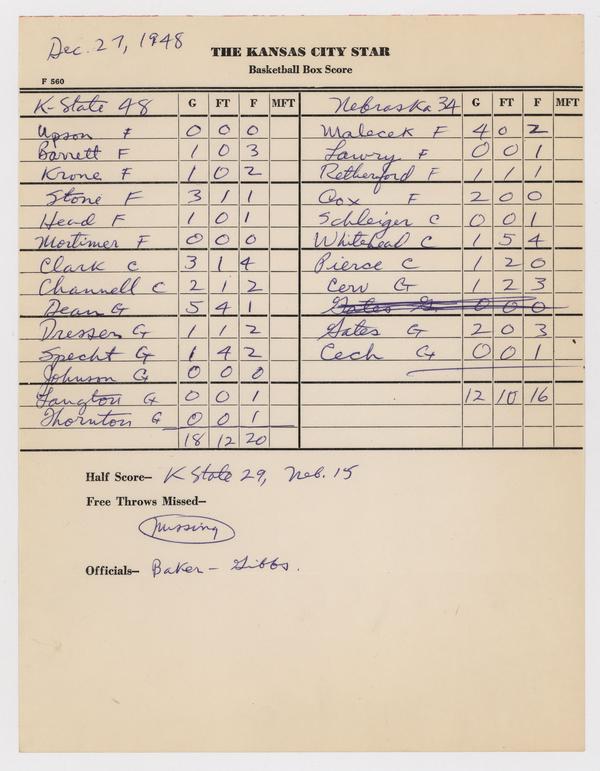 Dec. 27, 1948
THE KANSAS CITY STAR
Basketball Box Score
F 560
K-State 48 G FT F MFT Nebraska 34 G FT F MFT
Upson F 0 0 0 Malecek F 4 0 2
Barrett F 1 0 3 Lawry F 0 0 1
Krone F 1 0 2 Retherford F 1 1 1
Stone F 3 1 1 Cox F 2 0 0
Head F 1 0 1 Schleiger C 0 0 1
Mortimer F 0 0 0 Whitehead C 1 5 4
Clark C 3 1 4 Pierce C 1 2 0
Channell C 2 1 2 Cerv G 1 2 3
Dean G 5 4 1 Gates G 0 0 0
Dresser G 1 1 2 Gates G 2 0 3
Specht G 1 4 2 Cech G 0 0 1
Johnson G 0 0 0
Langton G 0 0 1 12 10 16
Thornton G 0 0 1
18 12 20
Half Score— K State 29, Neb. 15
Free Throws Missed—
Missing
Officials— Baker – Gibbs.